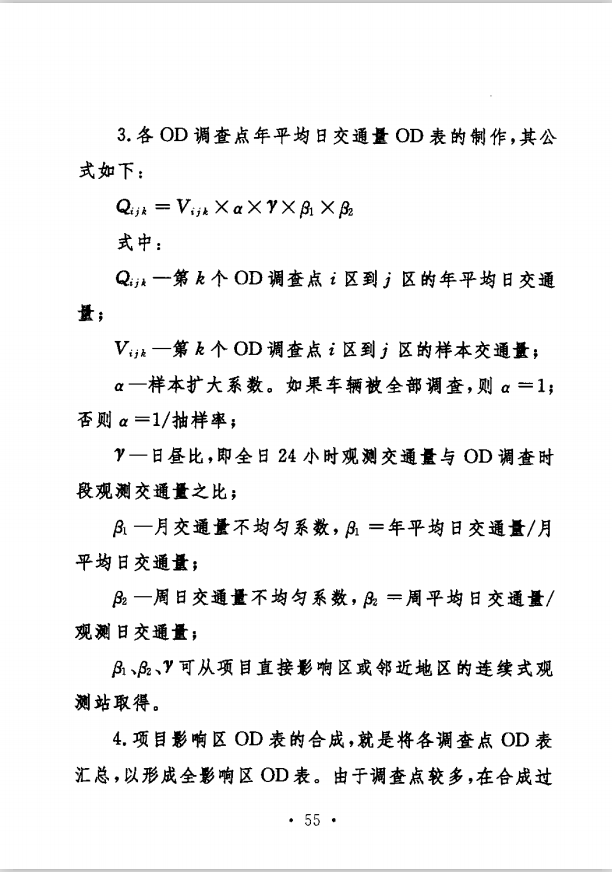 3.各 OD 调查点年平均日交通量 OD 表的制作,其公
式如下:
Qijk = Vijk × α × γ × β1 × β2
式中:
Qijk —第 k 个 OD 调查点 i 区到 j 区的年平均日交通
量;
Vijk —第 k 个 OD 调查点 i 区到 j 区的样本交通量;
α —样本扩大系数。如果车辆被全部调查,则 α =1;
否则 α =1/抽样率;
γ —日昼比,即全日 24 小时观测交通量与 OD 调查时
段观测交通量之比;
β1 —月交通量不均匀系数,β1 =年平均日交通量/月
平均日交通量;
β2 —周日交通量不均匀系数,β2 =周平均日交通量/
观测日交通量;
β1、β2、γ 可从项目直接影响区或邻近地区的连续式观
测站取得。
4.项目影响区 OD 表的合成,就是将各调查点 OD 表
汇总,以形成全影响区 OD 表。由于调查点较多,在合成过
· 55 ·